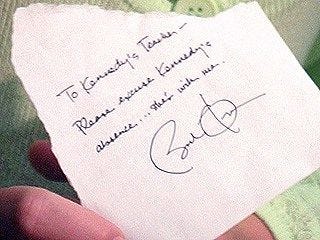 To Kennedy's Teacher—
Please excuse Kennedy's
absence...she's with me.